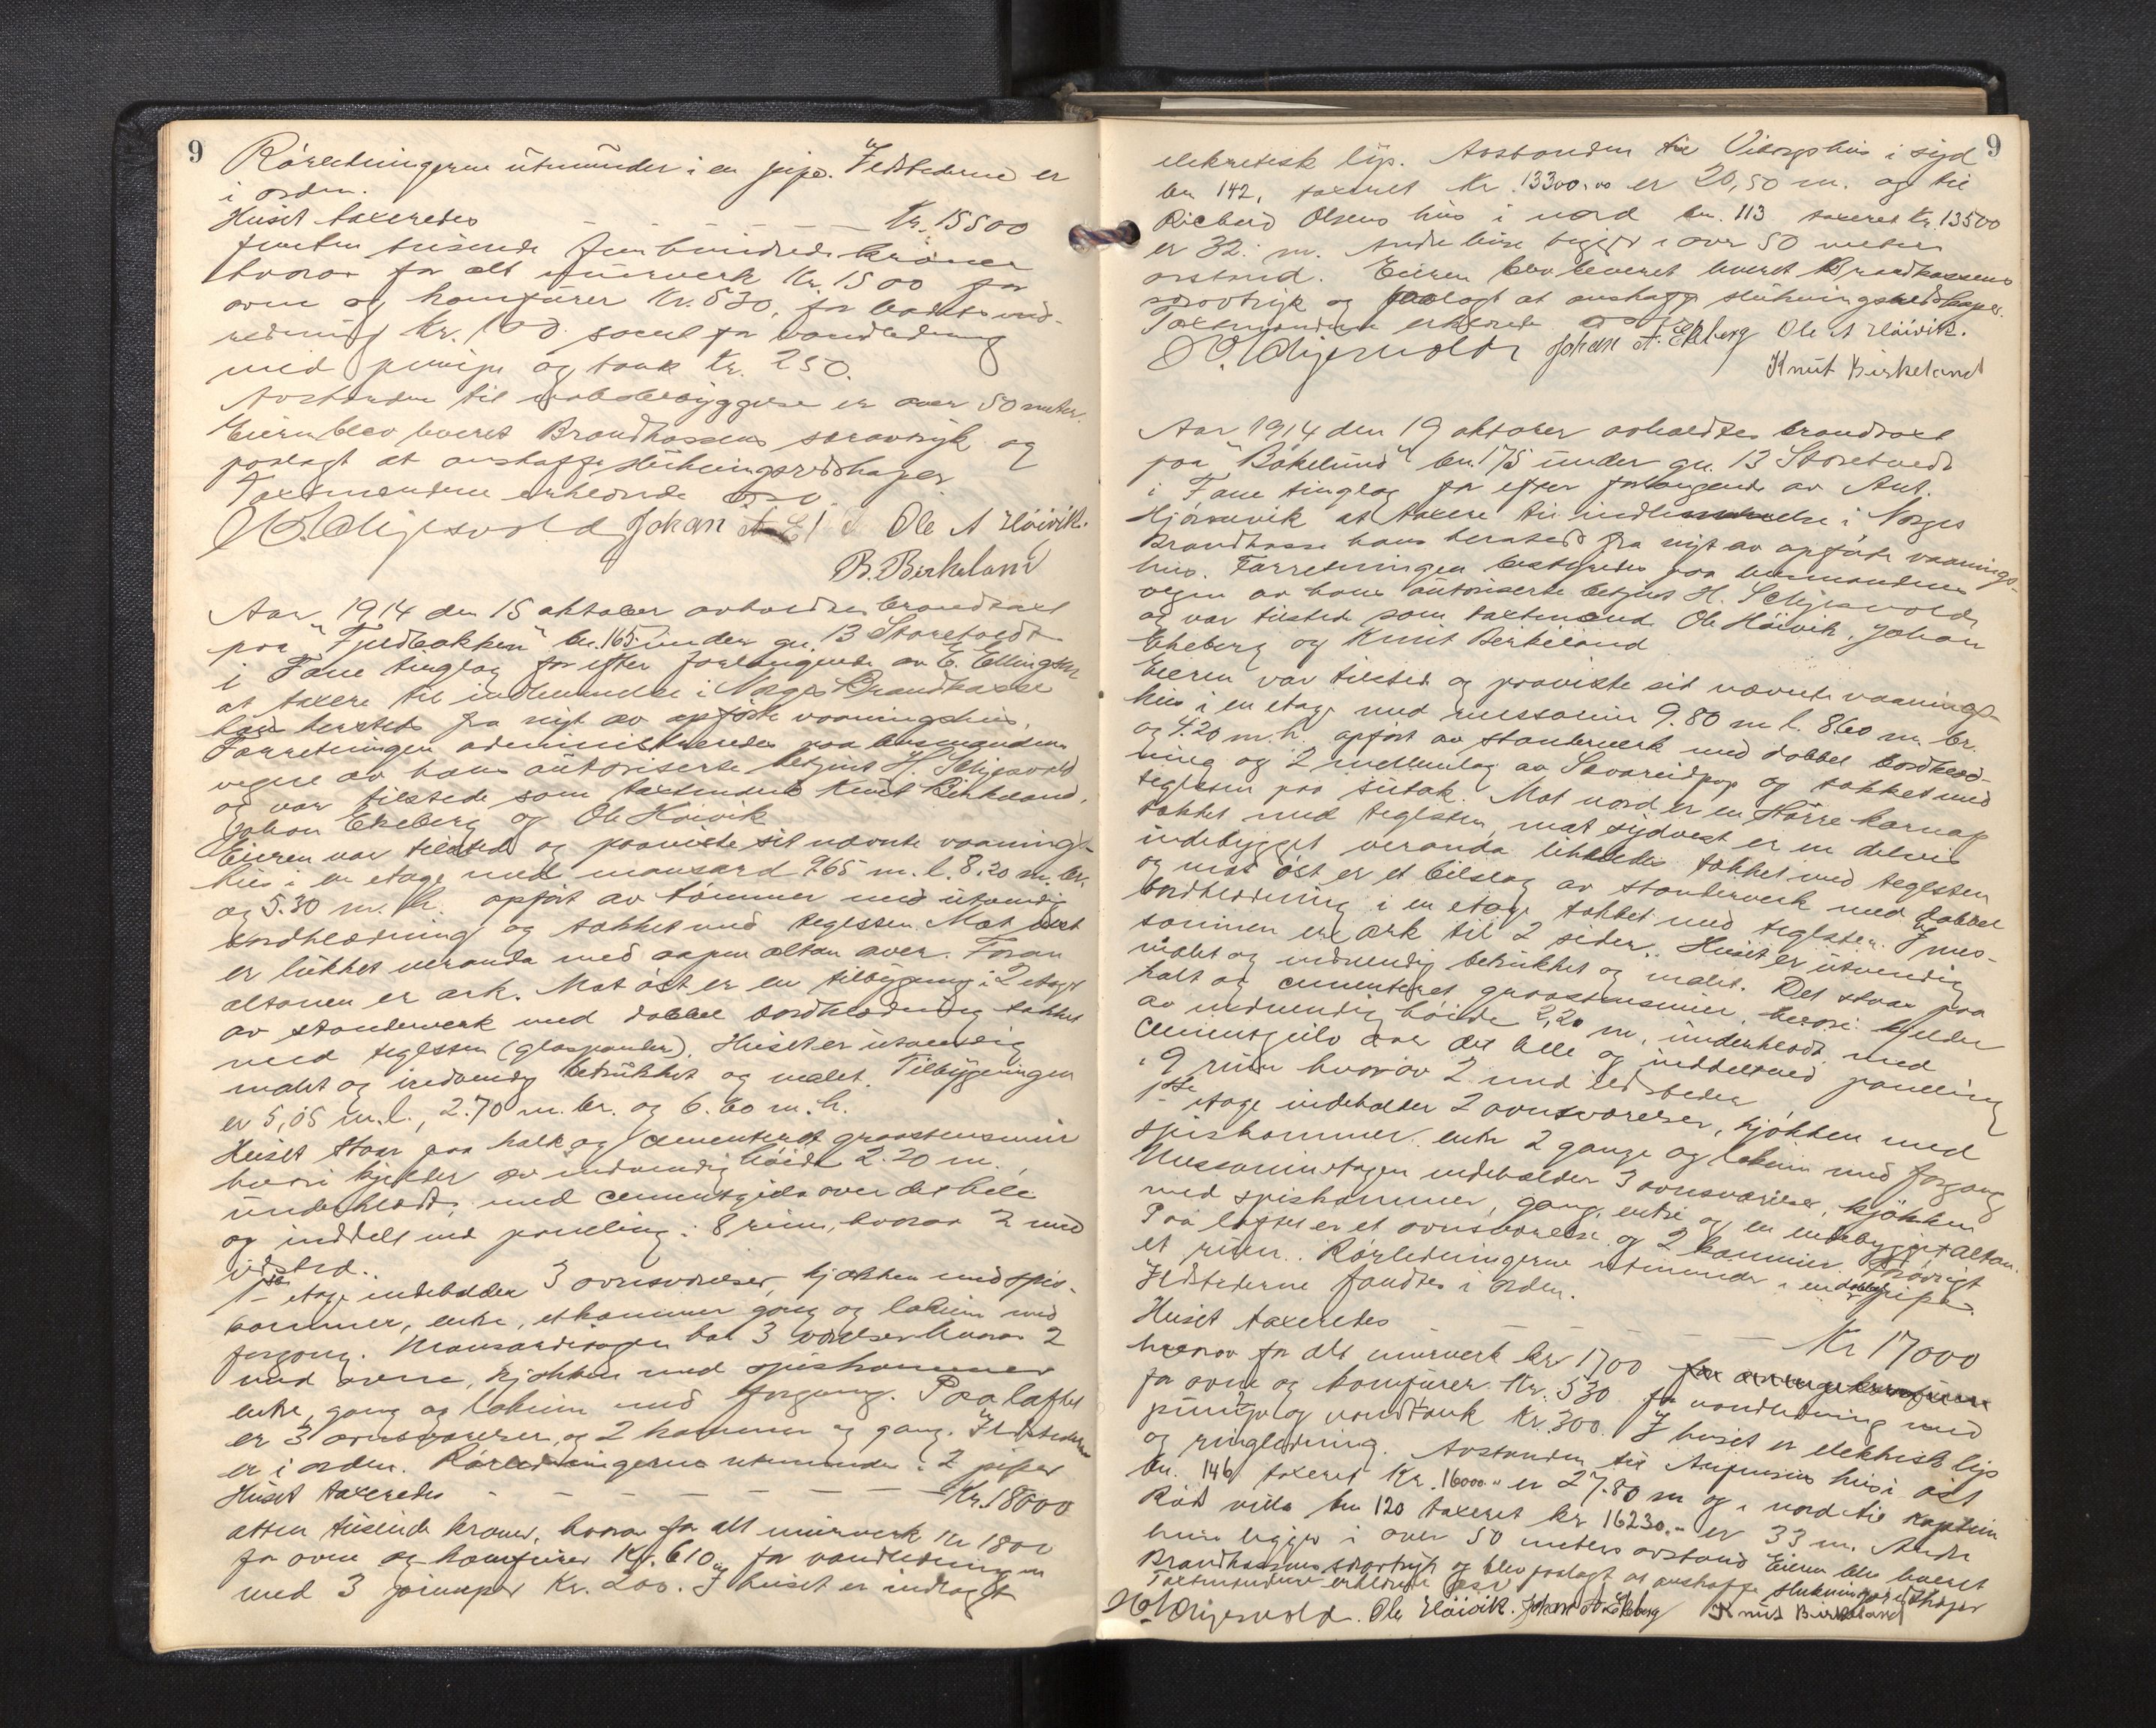 9
Rörledningerne utmunder i en pipe. Ildstederne er
i orden.
Huset taxeredes — — — Kr. 15500
femten tusinde fem hundrede kroner
hvorav for alt murverk Kr. 1500 for
ovne og komfurer Kr. 530, for badets ind-
redning Kr. 100. samt for vandledning
med pumpe og tank Kr. 250.
Avstanden til nabobebyggelse er over 50 meter.
Eieren blev leveret Brandkassens særavtryk og
paalagt at anskaffe slukningsredskaper
Taxtmændene erklærede osv.
H. Schjersvold Johan A Ole A Höivik.
B. Birkeland
Aar 1914 den 15 oktober avholdtes brandtaxt
paa "Fjeldbakken" bn. 165 under gn. 13 Storetvedt
i Fane tinglag for efter forlangende av E. Ellingsen
at taxere til indlemmelse i Norges Brandkasse
hans dersteds fra nyt av opförte vaaningshus.
Forretningen administreredes paa lensmandens
vegne av hans autoriserte betjent H. Schjersvold
og var tilstede som taxtmænd Knut Birkeland,
Johan Ekeberg og Ole Höivik
Eieren var tilsted og paaviste sit nævnte vaanings-
hus i en etage med mansard 9.65 m. l. 8.20 m. br.
og 5.30 m. h. opfört av tömmer med utvendig
bordklædning og tækket med teglsten. Mot vest
er lukket veranda med aapen altan over. Foran
altanen er ark. Mot öst er en tilbygning i 2 etager
av stenderverk med dobbel bordklædning tækket
med teglsten (glaspander). Huset er utvendig
malet og indvendig betrukket og malet. Tilbygningen
er 5,05 m. l., 2.70 m. br. og 6.60 m. h.
Huset staar paa kalk og cementeret graastensmur
hvori kjelder av indvendig höide 2.20 m.,
underklædt, med cementgulv over det hele
og inddelt med paneling i 8 rum, hvorav 2 med
ildsted.
1ste etage indeholder 3 ovnsværelser, kjøkken med spis-
kammer, entre, et kammer gang og lokum med
forgang. Mansardetagen har 3 værelser hvorav 2
med ovne, kjøkken med spiskammer
entre, gang og lokum med forgang. Paa loftet
er 3 ovnsværelser og 2 kammer og gang. Ildstederne
er i orden. Rörledningerne utmunder i 2 piper
Huset taxeredes - - - - - - Kr. 18000
atten tusinde kroner, hvorav for alt murverk Kr 1800
for ovne og komfurer Kr. 610,- for vandledningen
med 3 pumper Kr. 200. I huset er indlagt
9
elektrisk lys. Avstanden til Viborgs hus i syd
bn 142, taxeret Kr. 13300.00 er 20,50 m. og til
Richard Olsens hus i nord bn. 113 taxeret Kr. 13500
er 32. m. Andre huse ligger i over 50 meters
avstand. Eieren blev leveret Brandkassens
særavtryk og paalagt at anskaffe slukningsredskaper.
Taxtmændene erklærede osv.
H. Schjersvold Johan A. Ekeberg Ole A Höivik.
Knut Birkeland
Aar 1914 den 19 oktober avholdtes brandtaxt
paa "Bökelund" bn. 175 under gn. 13 Storetvedt
i Fane tinglag for efter forlangende av Ant.
at taxere til indlemmelse i Norges
Brandkasse hans dersteds fra nyt av opförte vaanings-
hus. Forretningen bestyredes paa lensmandens
vegne av hans autoriserte betjent H. Schjersvold
og var tilsted som taxtmænd Ole Höivik, Johan
Ekeberg og Knut Birkeland
Eieren var tilsted og paaviste sit nævnte vaanings-
hus i en etage med messanin 9.80 m l. 8.60 m. br.
og 4.20 m. h. opfört av stenderverk med dobbel bordklæd-
ning og 2 mellemlag av Savareidpap og tækket med
teglsten paa sutak. Mot nord er en större karnap
tækket med teglsten, mot sydvest er en delvis
indebygget veranda likeledes tækket med teglsten
og mot öst er et bislag av stenderverk med dobbel
bordklædning i en etage tækket med teglsten. I mes-
saninen er ark til 2 sider. Huset er utvendig
malet og indvendig betrukket og malet. Det staar paa
kalk og cementeret graastensmur, hvori kjelder
av indvendig höide 2,20 m, underklædt, med
cementgulv over det hele og inddelt med paneling
i 9 rum hvorav 2 med ildsteder
1ste etage indeholder 2 ovnsværelser, kjökken med
spiskammer, entre 2 gange og lokum med forgang
Messaninetagen indeholder 3 ovnsværelser, kjökken
med spiskammer, gang, entre og en indebygget altan.
Paa loftet er et ovnsværelse og 2 kammer. Forövrigt
et rum. Rörledningerne utmunder i en dobbelt pipe.
Ildstederne fandtes i orden.
Huset taxeredes — — — — — Kr 17000
hvorav for alt murverk kr 1700
for ovne og komfurer Kr. 530 for vandledning med
pumpe og vandtank Kr. 300. I huset er elektrisk lys
og ringledning. Avstanden til hus i öst
bn. 146 taxeret Kr. 16000.- er 27.80 m og i nord til Kaptein
villa bn 120 taxeret kr 16230.- er 33 m. Andre
huse ligger i over 50 meters avstand Eieren blev leveret
Brandkassens særavtryk og blev paalagt at anskaffe slukningsredskaper
Taxtmændene erklærede osv
H. Schjersvold. Ole Höivik. Johan A Ekeberg Knut Birkeland